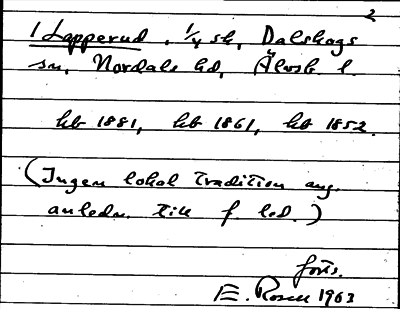 2
1 Lapperud, 1/4 sk, Dalskogs
sn, Nordals hd, Älvsb. l.
hb 1881, hb 1861, hb 1852.
(Ingen lokal tradition ang.
anledn. till f. led.)
forts.
E. Rosell 1963